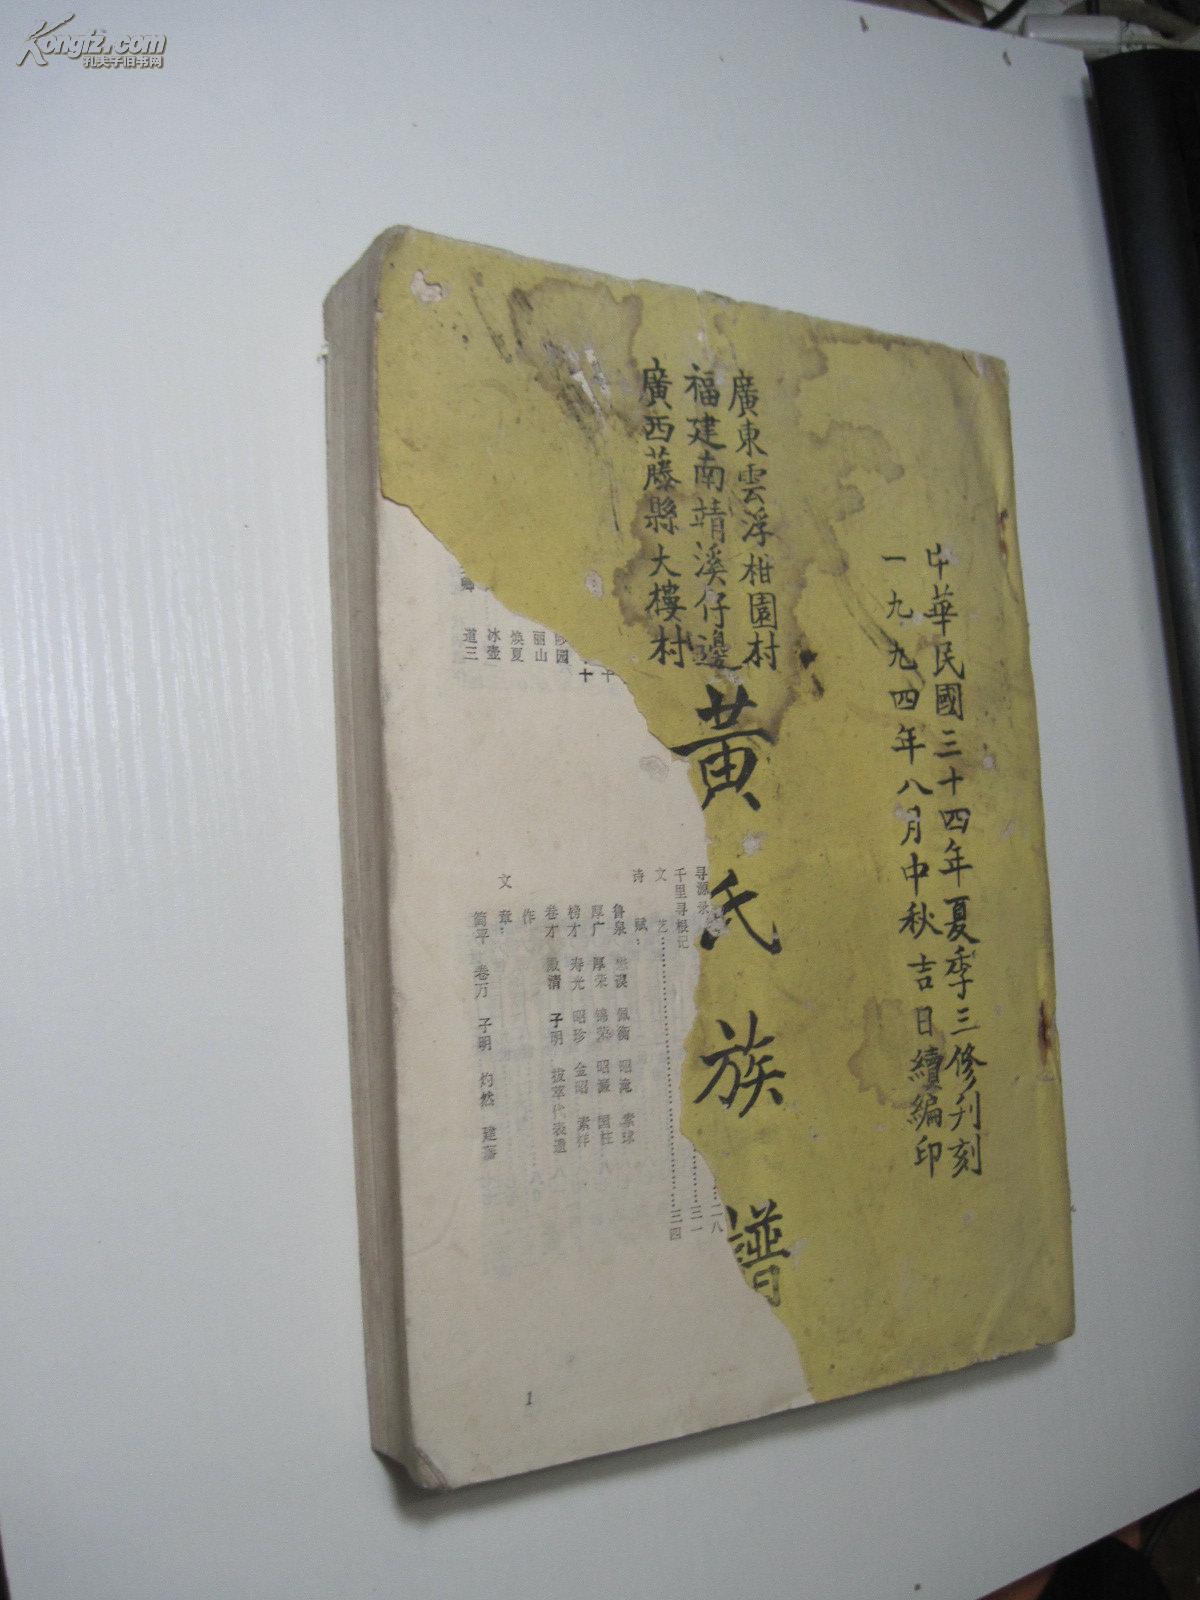 Kongfz.com
孔夫子旧书网
中華民國三十四年夏季三修刋刻
一九九四年八月中秋吉日續編印
廣東雲浮柑園村
福建南靖溪仔邊
廣西藤縣大樓村
黃氏族譜
寻源录 二八
千里寻根记 三一
文艺 三四
诗赋：
鲁泉 佩衡 昭淹 素球
厚广 厚荣 锦荣 昭灏 国柱
榜才 寿光 昭珍 金昭 素祥
卷才 激清 子明 拔萃代表遗
作
文章：
简平 卷万 子明 灼然 建藩
丽山
焕夏
冰壶
道三
1